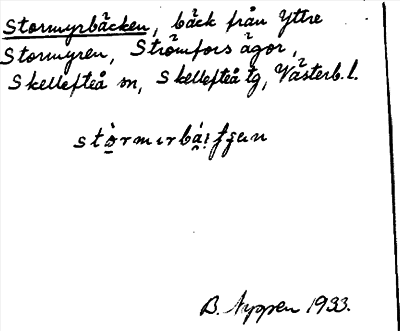 Stormyrbäcken, bäck från Yttre
Stormyren, Strömfors ägor,
Skellefteå sn, Skellefteå tg, Västerb. l.
B. 1933.